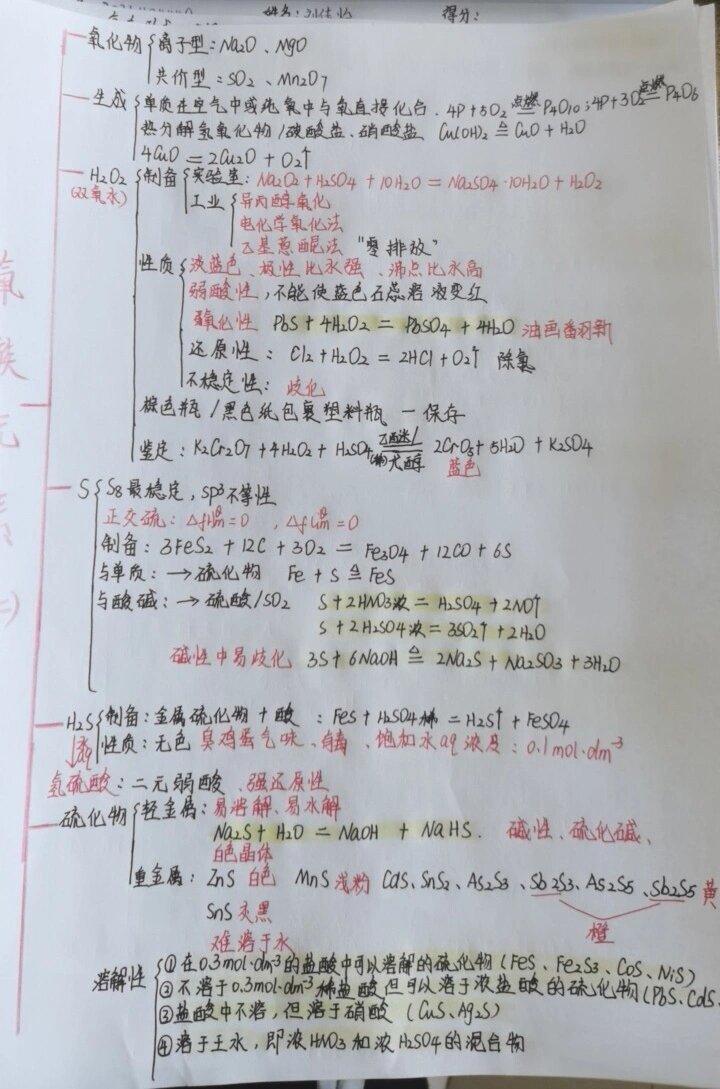 姓名: 得分:
氧化物 离子型: Na2O、MgO
共价型: SO2、Mn2O7
生成 单质在空气中或纯氧中与氧直接化合. 4P+5O2 点燃= P4O10; 4P+3O2 点燃= P4O6
热分解氢氧化物/碳酸盐、硝酸盐 Cu(OH)2 ≜ CuO + H2O
4CuO = 2Cu2O + O2↑
H2O2 制备 实验室: Na2O2 + H2SO4 + 10H2O = Na2SO4·10H2O + H2O2
(双氧水) 工业 异丙醇氧化
电化学氧化法
乙基蒽醌法 "零排放"
性质 淡蓝色、极性比水强、沸点比水高
弱酸性, 不能使蓝色石蕊溶液变红
强氧化性 PbS + 4H2O2 = PbSO4 + 4H2O 油画翻新
还原性: Cl2 + H2O2 = 2HCl + O2↑ 除氯
不稳定性: 歧化
棕色瓶/黑色纸包裹塑料瓶 — 保存
鉴定: K2Cr2O7 + 4H2O2 + H2SO4 乙醚/戊醇= 2CrO5 + 5H2O + K2SO4
蓝色
氧族元素(二)
S S8最稳定, sp3不等性
正交硫: ΔfHmθ=0 , ΔfGmθ=0
制备: 3FeS2 + 12C + 3O2 = Fe3O4 + 12CO + 6S
与单质: → 硫化物 Fe + S ≜ FeS
与酸碱: → 硫酸/SO2 S + 2HNO3浓 = H2SO4 + 2NO↑
S + 2H2SO4浓 = 3SO2↑ + 2H2O
碱性中易歧化 3S + 6NaOH ≜ 2Na2S + Na2SO3 + 3H2O
H2S 制备: 金属硫化物 + 酸 : FeS + H2SO4稀 = H2S↑ + FeSO4
aq 性质: 无色 臭鸡蛋气味、有毒、饱和水aq浓度: 0.1mol·dm-3
氢硫酸: 二元弱酸、强还原性
硫化物 轻金属: 易溶解、易水解
Na2S + H2O = NaOH + NaHS. 碱性、硫化碱、
白色晶体
重金属: ZnS 白色 MnS 浅粉 CdS、SnS2、As2S3、Sb2S3、As2S5、Sb2S5 黄
SnS 灰黑 橙
难溶于水
溶解性 ①在0.3mol·dm-3的盐酸中可以溶解的硫化物(FeS、Fe2S3、CoS、NiS)
②不溶于0.3mol·dm-3稀盐酸但可以溶于浓盐酸的硫化物(PbS、CdS、
③盐酸中不溶, 但溶于硝酸 (CuS、Ag2S)
④溶于王水, 即浓HNO3和浓H2SO4的混合物